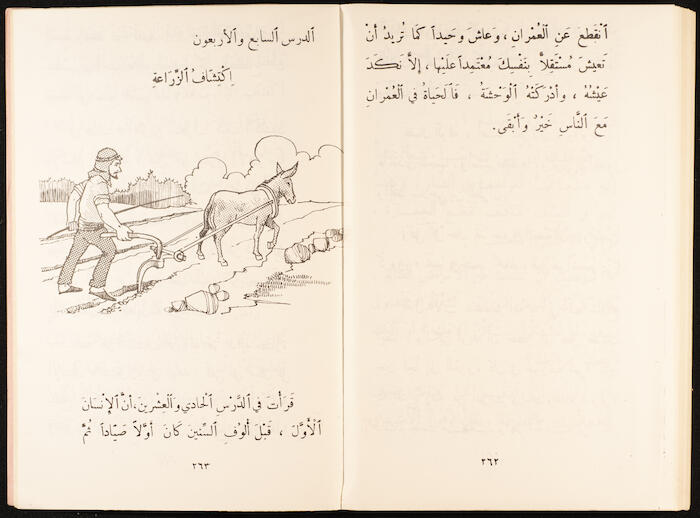 ٱنْقَطَعَ عَنِ ٱلْعُمْرانِ ، وَعاشَ وَحيداً كَما تُريدُ أَنْ
تَعيشَ مُسْتَقِلاًّ بِنَفْسِكَ مُعْتَمِداً عَلَيْها ، إِلاَّ نَكَدَ
عَيْشُهُ ، وَأَدْرَكَتْهُ ٱلْوَحْشَةُ ، فَٱلحَياةُ في ٱلْعُمْرانِ
مَعَ ٱلنَّاسِ خَيْرٌ وَأَبْقَى.
٢٦٢
ٱلدرس ٱلسابع وٱلأربعون
اِكْتِشافُ ٱلزِّرَاعَةِ
قَرَأْتَ في ٱلدَّرْسِ ٱلحادي وٱلْعِشْرينَ، أَنَّ ٱلإِنْسَانَ
ٱلأَوَّلَ ، قَبْلَ أُلوفِ ٱلسِّنينَ كَانَ أَوَّلاً صَيَّاداً ثُمَّ
٢٦٣